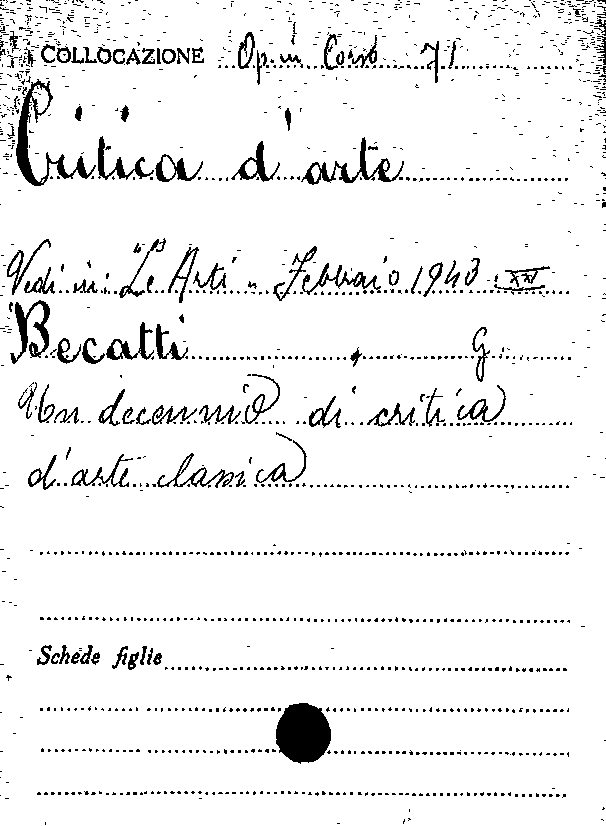 COLLOCAZIONE Op. in Corso 71
Critica d'arte
Vedi in: "Le Arti" Febbraio 1943 XXI
Becatti, G.
Un decennio di critica
d'arte classica
Schede figlie